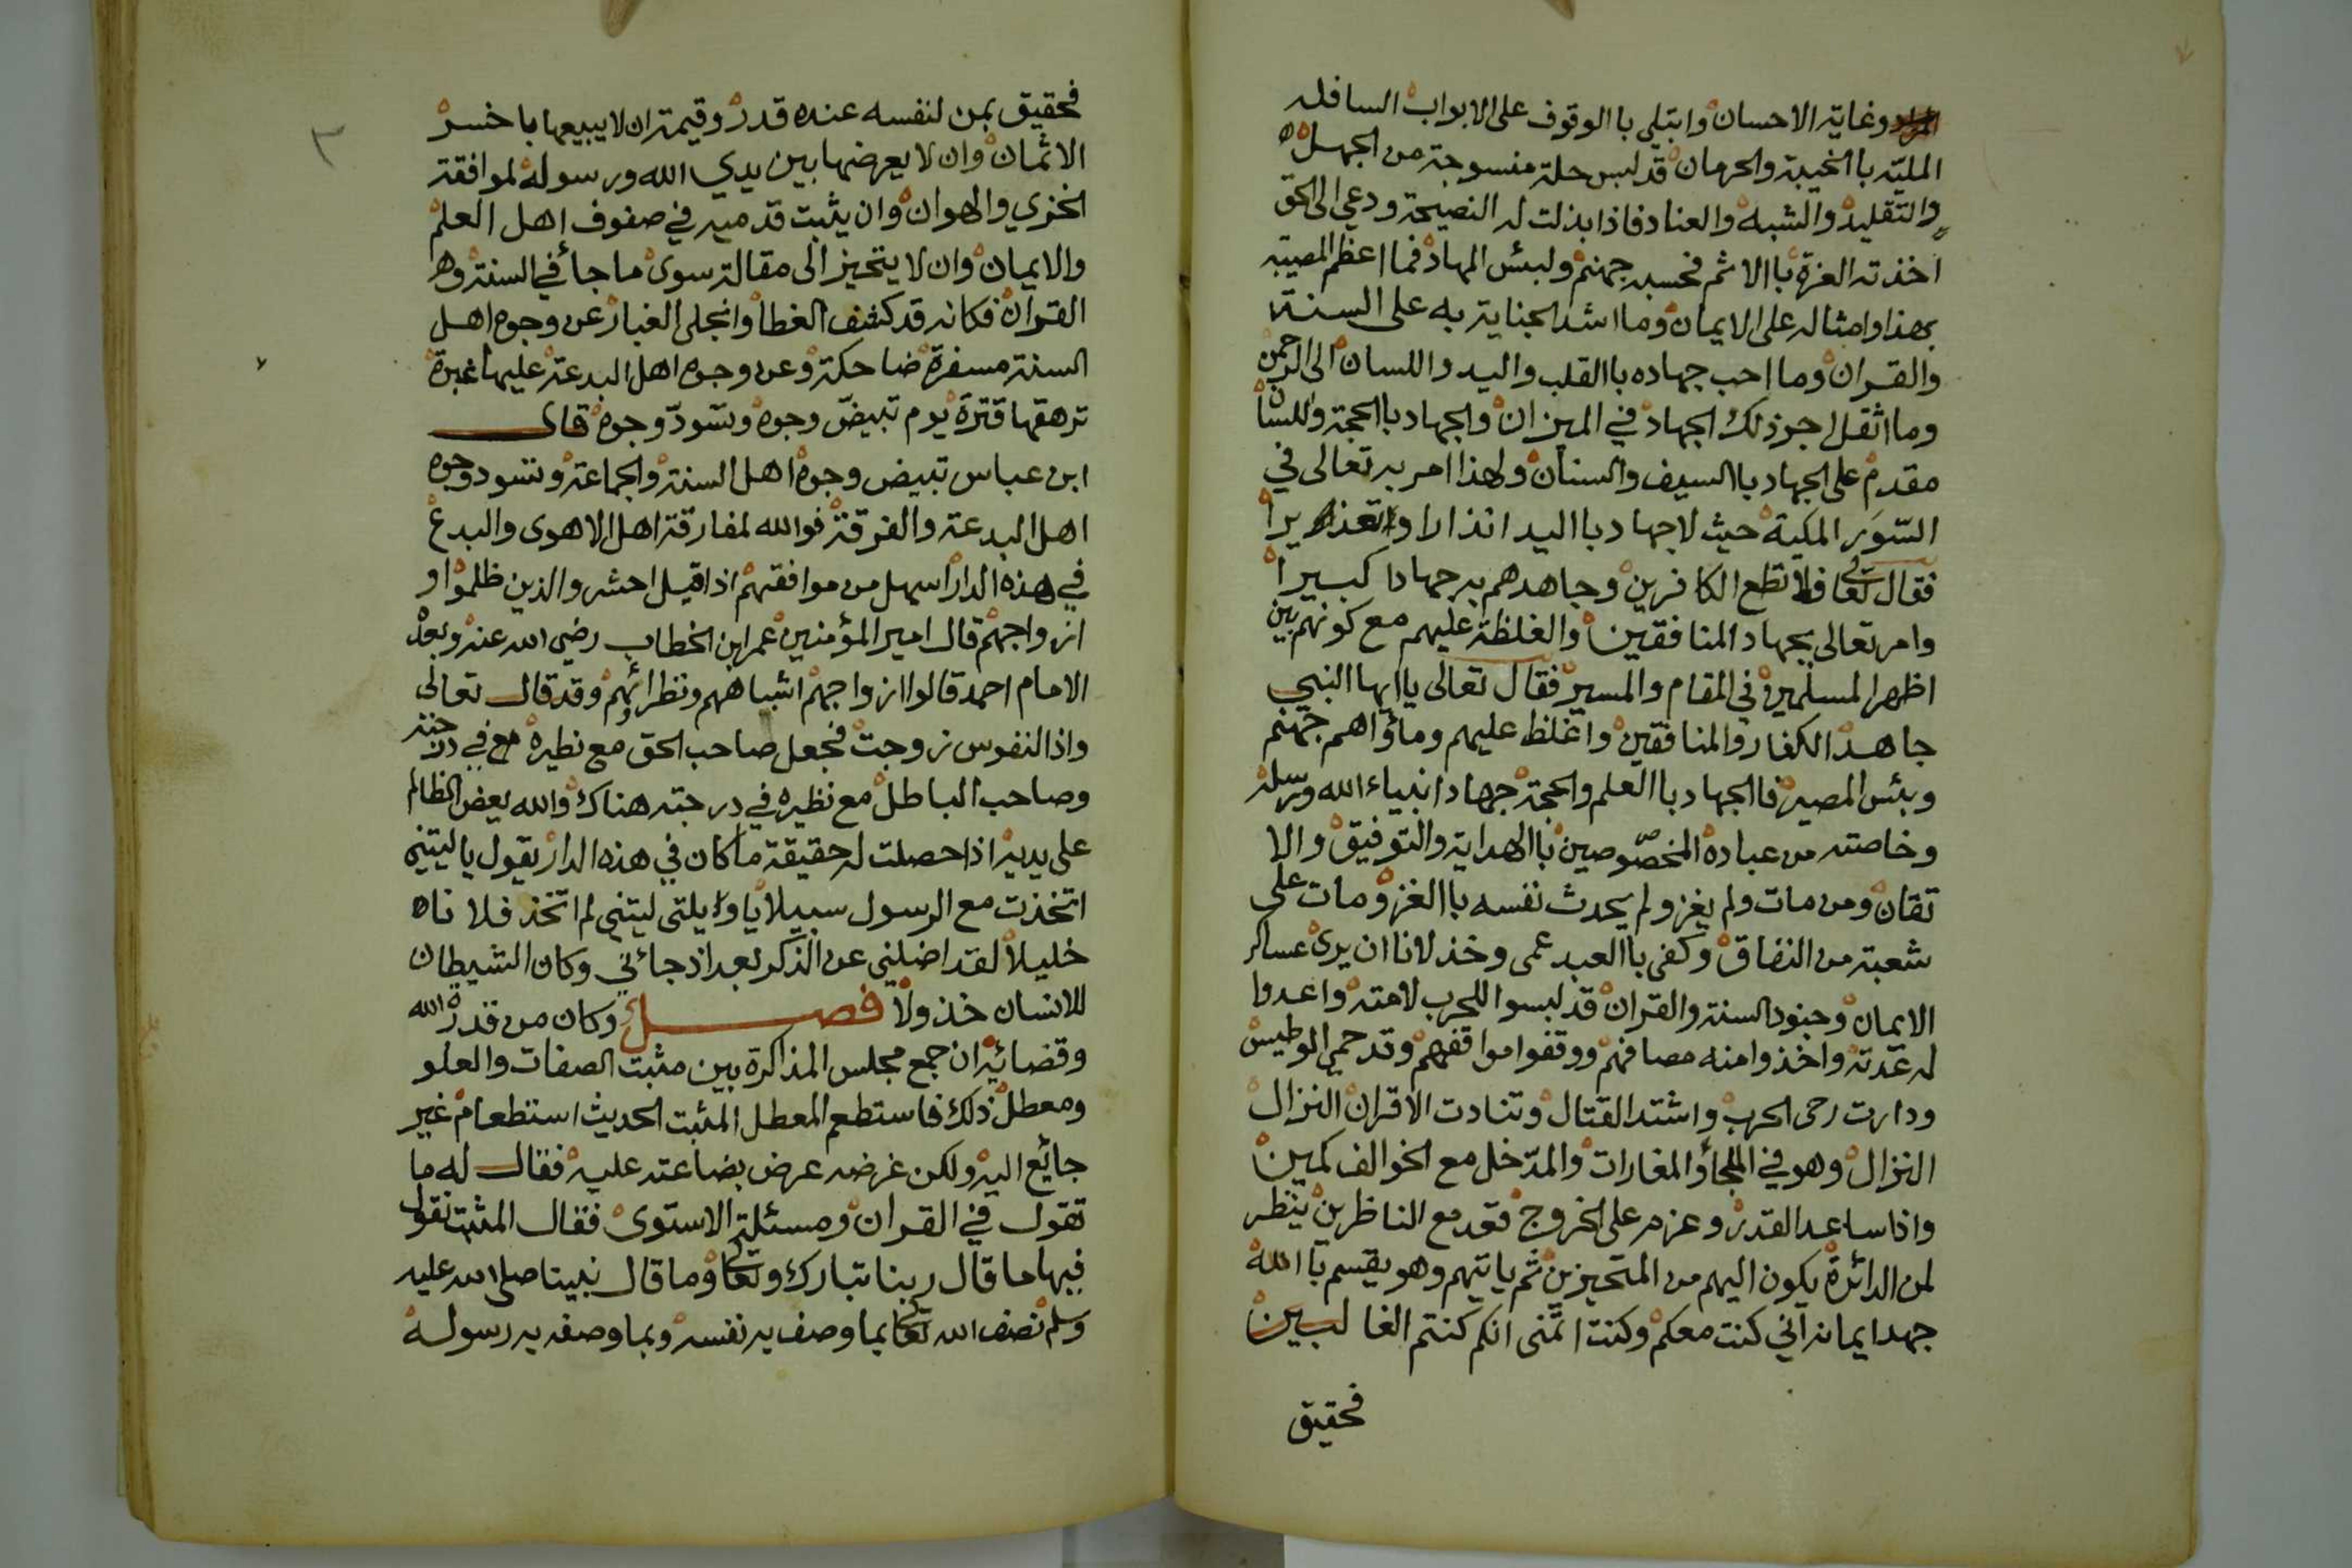 وغاية الاحسان وابتلي باالوقوف على الابواب السافله
المليّه باالخيبة والحرمان قد لبس حلة منسوجة من الجهل
والتقليد والشبه والعناد فاذا بذلت له النصيحة ودعي الى الحق
اخذته العزة باالاثم فحسبه جهنم ولبئس المهاد فما اعظم المصيبة
بهذا وامثاله على الايمان وما اشد الجناية به على السنة
والقران وما احب جهاده باالقلب واليد واللسان الى الرحمن
وما اثقل اجر ذلك الجهاد في الميزان والجهاد باالحجة واللسان
مقدم على الجهاد باالسيف والسنان ولهذا امر به تعالى في
السّوَر المكية حيث لا جهاد باليد انذارا وتعذيرا
فقال تعالى فلا تطع الكافرين وجاهدهم به جهادا كبيرا
وامر تعالى بجهاد المنافقين والغلظة عليهم مع كونهم بين
اظهر المسلمين في المقام والمسير فقال تعالى يا ايها النبي
جاهد الكفار والمنافقين واغلظ عليهم ومأواهم جهنم
وبئس المصير فا الجهاد باالعلم والحجة جهاد انبياء الله ورسله
وخاصته من عباده المخصّوصين باالهداية والتوفيق والا
تقان ومن مات ولم يغز ولم يحدث نفسه باالغزو مات على
شعبة من النفاق وكفى باالعبد عمى وخذلانا ان يرى عساكر
الايمان وجنود السنة والقران قد لبسوا للحرب لامته واعدوا
له عدّته واخذوا منه مصافهم ووقفوا مواقفهم وقد حمي الوطيس
ودارت رحى الحرب واشتد القتال وتنادت الاقران النزال
النزال وهو في الملجأ والمغارات والمدّخل مع الخوالف كمين
واذا ساعد القدر وعزم على الخروج قعد مع الناظرين ينظر
لمن الدائرة يكون اليهم من المتحيزين ثم ياتيهم وهو يقسم باالله
جهد ايمانه اني كنت معكم وكنت اتمنى انكم كنتم الغالبين
فحقيق
٣
فحقيق بمن لنفسه عنده قدر وقيمة ان لا يبيعها باخسر
الاثمان وان لا يعرضها بين يدي الله ورسوله لموافقة
الخزي والهوان وان يثبت قدميه في صفوف اهل العلم
والايمان وان لا يتحيز الى مقالة سوى ما جأ في السنة وها
القران فكانه قد كشف الغطأ وانجلى الغبار عن وجوه اهل
السنة مسفرة ضاحكة وعن وجوه اهل البدعة عليها غبرة
ترهقها قترة يوم تبيضّ وجوه وتسّودّ وجوه قال
ابن عباس تبيض وجوه اهل السنة والجماعة وتسود وجوه
اهل البدعة والفرقة فوالله لمفارقة اهل الاهوى والبدع
في هذه الدار اسهل من موافقتهم اذا قيل احشروالذين ظلموا و
ازواجهم قال امير المؤمنين عمر ابن الخطاب رضي الله عنه وبعده
الامام احمد قالوا ازواجهم اشباههم ونظرائهم وقد قال تعالى
واذا النفوس زوجت فجعل صاحب الحق مع نظيره في درجته
وصاحب الباطل مع نظيره في درجته هناك والله يعض الظالم
على يديه اذا حصلت له حقيقة ما كان في هذه الدار يقول ياليتني
اتخذت مع الرسول سبيلا يا ويلتى ليتني لم اتخذ فلانا
خليلا لقد اضلني عن الذكر بعد اذ جائني وكان الشيطان
للانسان خذولا فصل وكان من قدر الله
وقضائه ان جمع مجلس المذاكرة بين مثبت الصفات والعلو
ومعطل ذلك فاستطعم المعطل المثبت الحديث استطعام غير
جائع اليه ولكن غرضه عرض بضاعته عليه فقال له ما
تقول في القران ومسئلة الاستوى فقال المثبت نقول
فيها ما قال ربنا تبارك وتعالى وما قال نبينا صلى الله عليه
وسلم نصف الله تعالى بما وصف به نفسه وبما وصفه به رسوله